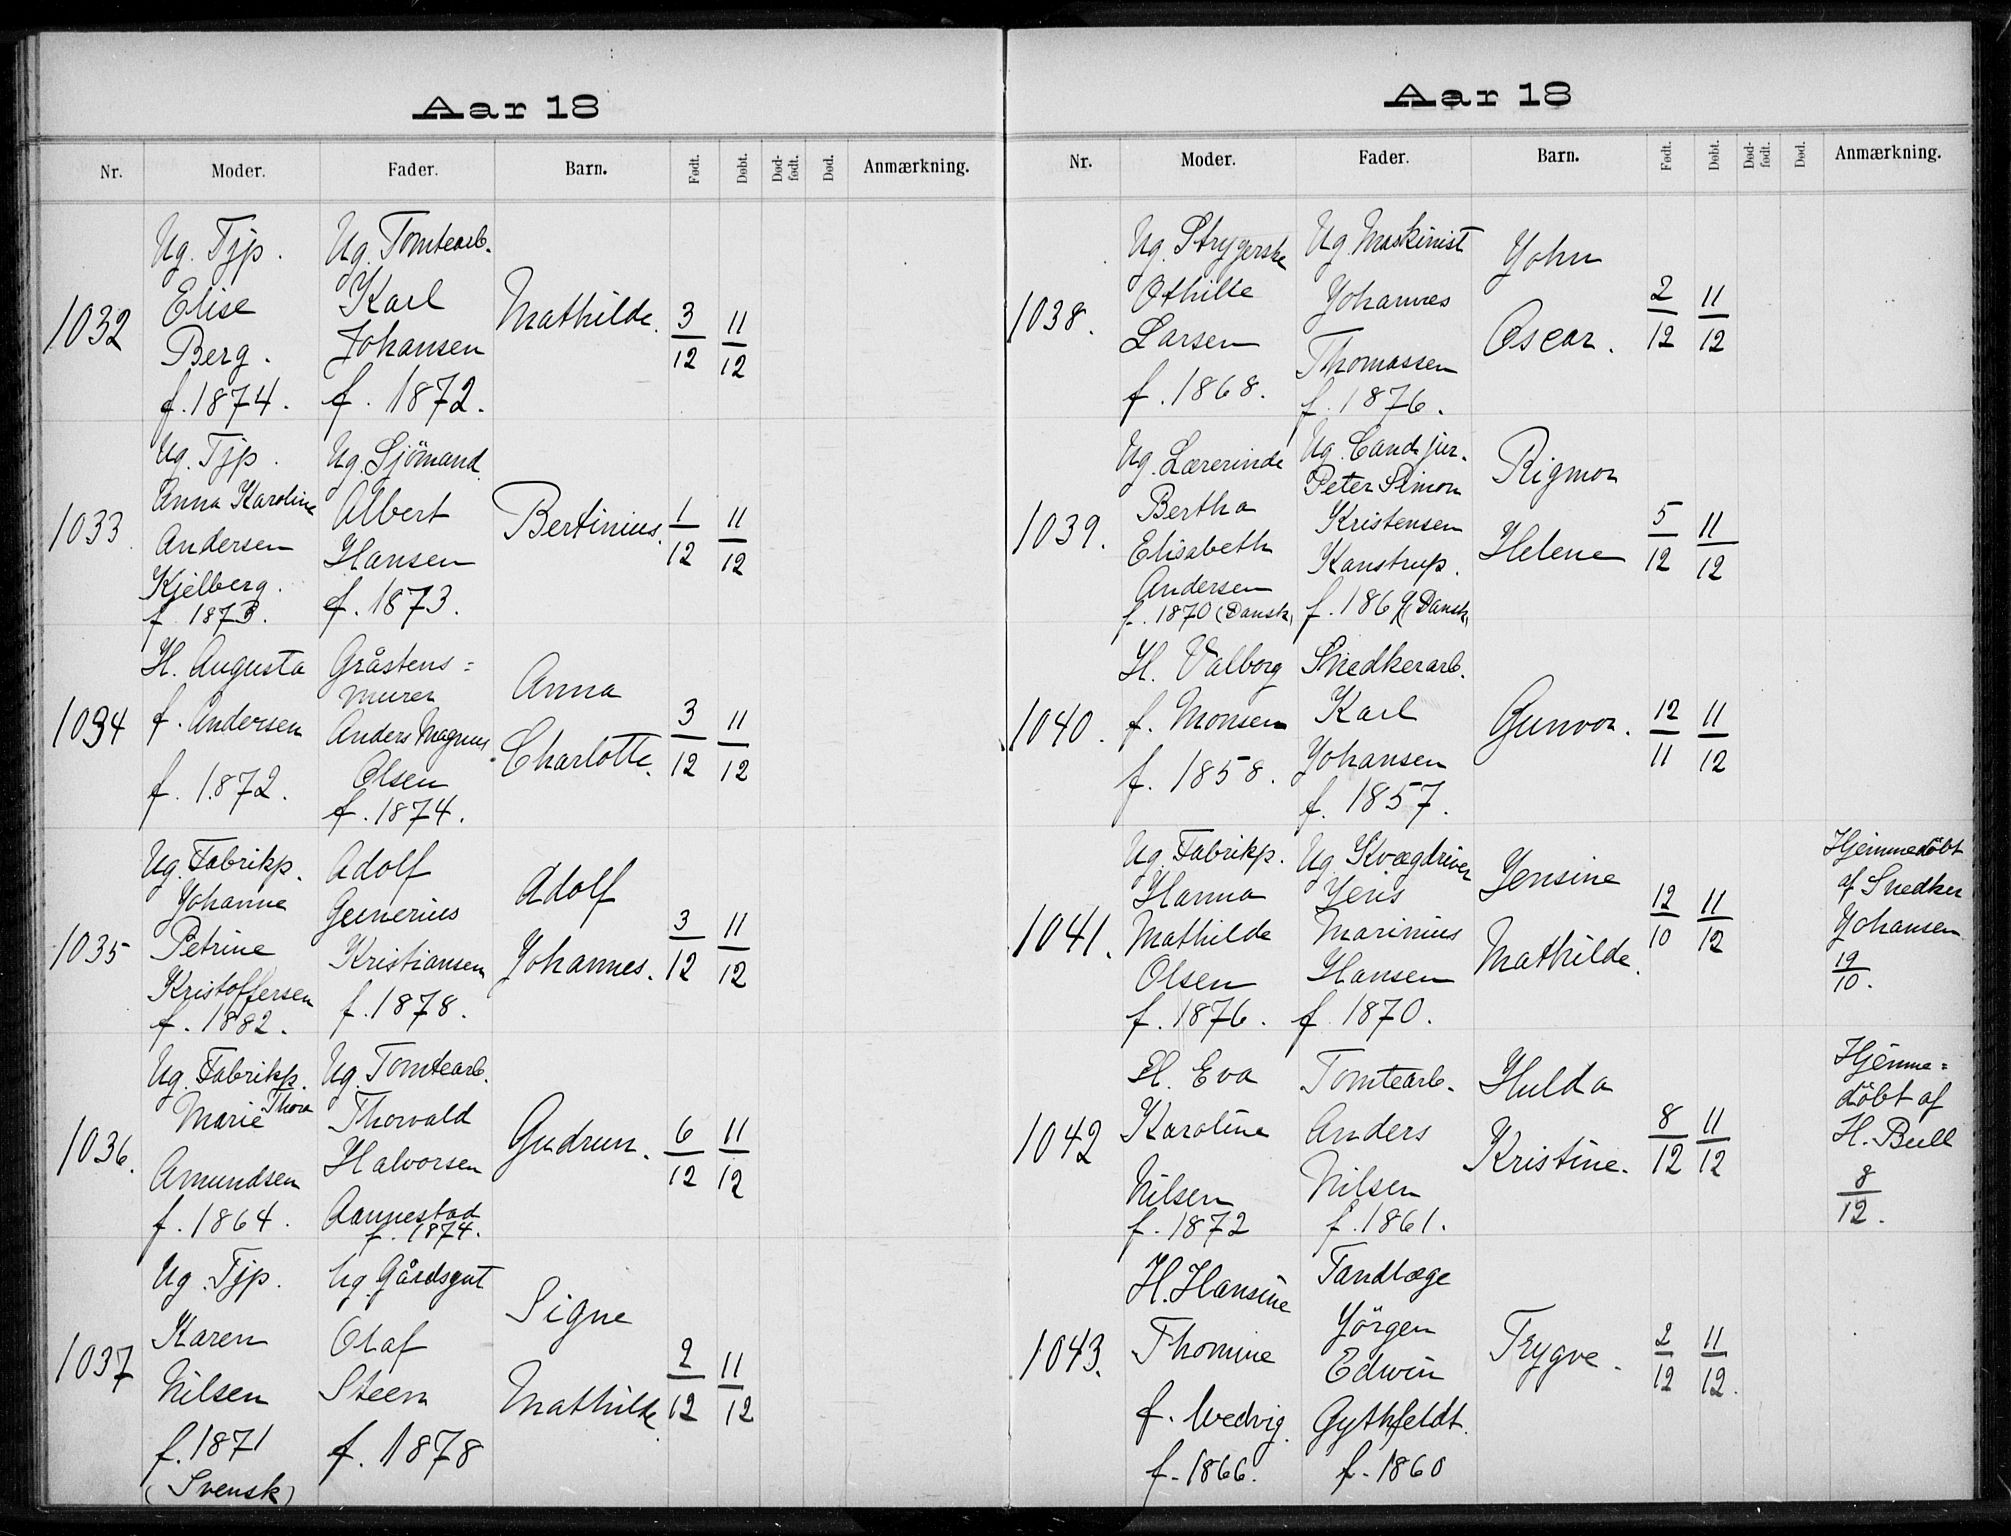 Aar 18
Nr. Moder. Fader. Barn. Født. Døbt. Dødfødt. Død. Anmærkning.
1032
Ug. Tjp.
Elise
Berg.
f. 1874.
Ug. Tomtearb.
Karl
Johansen
f. 1872.
Mathilde.
3/12
11/12
1033
Ug. Tjp.
Anna Karoline
Andersen
Kjelberg.
f. 1873.
Ug. Sjömand
Albert
Hansen
f. 1873.
Bertinius.
1/12
11/12
1034
H. Augusta
f. Andersen
f. 1872.
Gråstens=
murer
Anders Magnus
Olsen
f. 1874.
Anna
Charlotte.
3/12
11/12
1035
Ug. Fabrikp.
Johanne
Petrine
Kristoffersen
f. 1882.
Adolf
Gunerius
Kristiansen
f. 1878.
Adolf
Johannes.
3/12
11/12
1036.
Ug. Fabrikp.
Marie Thora
Amundsen
f. 1864.
Ug. Tomtearb.
Thorvald
Halvorsen
Aannestad
f. 1874.
Gudrun.
6/12
11/12
1037
Ug. Tjp.
Karen
Nilsen
f. 1871
(Svensk)
Ug. Gårdsgut
Olaf
Steen
f. 1878
Signe
Mathilde
2/12
11/12
Aar 18
Nr. Moder. Fader. Barn. Født. Døbt. Dødfødt. Død. Anmærkning.
1038.
Ug. Strygerske
Othilie
Larsen
f. 1868.
Ug. Maskinist
Johannes
Thomassen
f. 1876.
John
Oscar.
2/12
11/12
1039.
Ug. Lærerinde
Bertha
Elisabeth
Andersen
f. 1870 (Dansk)
Ug. Cand. jur.
Peter Simon
Kristensen
Kanstrup.
f. 1869 (Dansk)
Rigmor
Helene
5/12
11/12
1040.
H. Valborg
f. Monsen
f. 1858.
Snedkerarb.
Karl
Johansen
f. 1857.
Gunvor.
12/11
11/12
1041.
Ug. Fabrikp.
Hanna
Mathilde
Olsen
f. 1876.
Ug. Kvægdriver
Jens
Marinius
Hansen
f. 1870.
Jensine
Mathilde.
12/10
11/12
Hjemmedöbt
af Snedker
Johansen
19/10.
1042
H. Eva
Karoline
Nilsen
f. 1872
Tomtearb.
Anders
Nilsen
f. 1861.
Hulda
Kristine.
8/12
11/12
Hjemme=
döbt af
H. Bull
8/12.
1043.
H. Hansine
Thomine
f. Wedvig.
f. 1866.
Tandlæge
Jörgen
Edwin
Gythfeldt.
f. 1860
Trygve.
2/12
11/12.